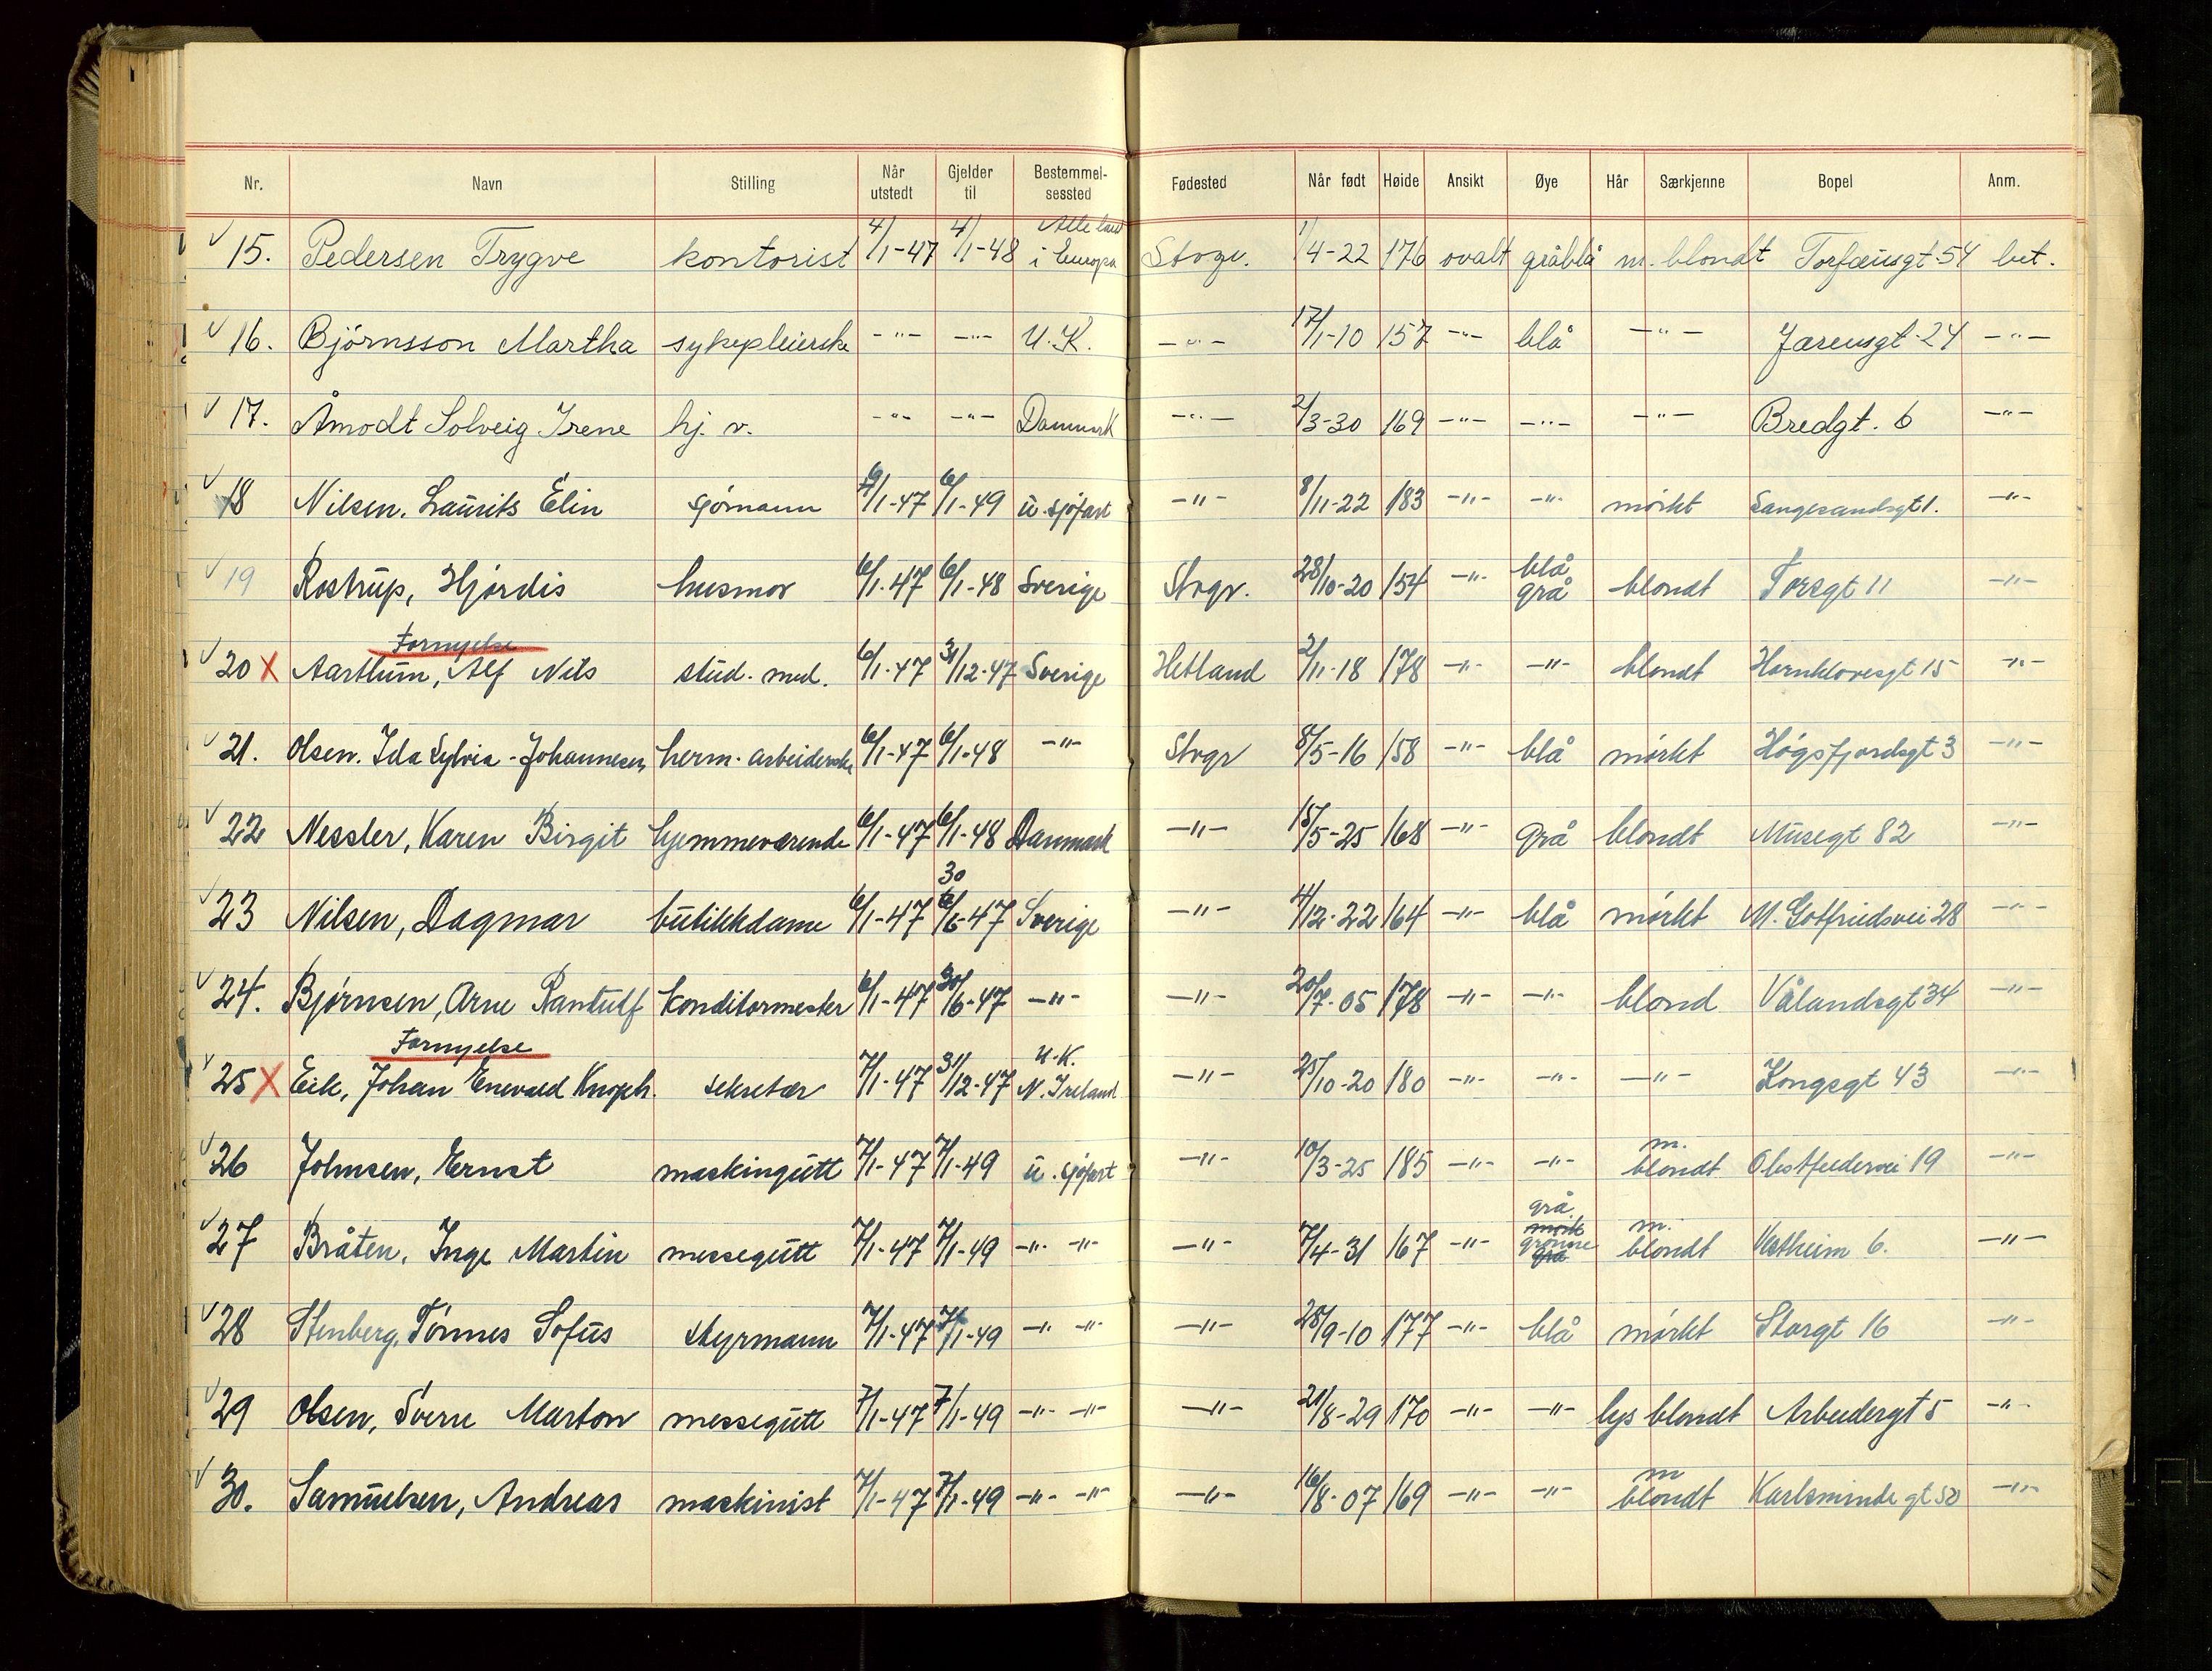 Nr. Navn Stilling Når utstedt Gjelder til Bestemmelsessted Fødested Når født Høide Ansikt Øye Hår Særkjenne Bopel Anm.
15. Pedersen Trygve kontorist 4/1-47 4/1-48 Alle land i Europa Stvgr. 1/4-22 176 ovalt gråblå m. blondt Torfæusgt. 54 bet.
16. Bjørnsson Martha sykepleierske -"- -"- U.K. -"- 17/1-10 157 -"- blå -"- Jærensgt. 24 -"-
17. Åmodt Solveig Irene hj. v. -"- -"- Danmark -"- 2/3-30 169 -"- -"- -"- Bredgt. 6 -"-
18 Nilsen. Laurits Elin sjømann 6/1-47 6/1-49 u. sjøfart -"- 8/11-22 183 -"- -"- mørkt Sangesandsgt 1. -"-
19 Rostrup, Hjørdis husmor 6/1-47 6/1-48 Sverige Stvgr. 28/10-20 154 -"- blå grå blondt Torsgt 11 -"-
Fornyelse
20 X Aarthun, Alf Nils stud. med. 6/1-47 31/12-47 Sverige Hetland 2/11-18 178 -"- -"- blondt Hornklovesgt 15 -"-
21. Olsen. Ida Sylvia - Johannesen herm. arbeiderske 6/1-47 6/1-48 -"- Stvgr 8/5-16 158 -"- blå mørkt Høgsfjordsgt 3 -"-
22 Nessler, Karen Birgit hjemmeværende 6/1-47 6/1-48 Danmark -"- 15/5-25 168 -"- grå blondt Musegt 82 -"-
23 Nilsen, Dagmar butikkdame 6/1-47 30/6-47 Sverige -"- 4/12-22 164 -"- blå mørkt M. Gotfriedsvei 28 -"-
24. Bjørnsen, Arne konditormester 6/1-47 30/6-47 -"- -"- 20/7-05 178 -"- -"- blond Vålandsgt 34 -"-
Fornyelse
25 X Eik, Johan Enevald Knoph. sekretær 7/1-47 31/12-47 U.K. N. Ireland -"- 25/10-20 180 -"- -"- -"- Kongsgt 43 -"-
26 Johnsen, Ernst maskingutt 7/1-47 7/1-49 u. sjøfart -"- 10/3-25 185 -"- -"- m. blondt Obstfeldervei 19 -"-
27 Bråten, Inge Martin messegutt 7/1-47 7/1-49 -"- -"- -"- 7/4-31 167 -"- grå mørk grønne grå m. blondt Vestheim 6. -"-
28 Stenberg, Tønnes Sofus styrmann 7/1-47 7/1-49 -"- -"- -"- 28/9-10 177 -"- blå mørkt Storgt 16 -"-
29 Olsen, Sverre Marton messegutt 7/1-47 7/1-49 -"- -"- -"- 21/8-29 170 -"- -"- lys blondt Arbeidergt 5 -"-
30. Samuelsen, Andreas maskinist 7/1-47 7/1-49 -"- -"- -"- 16/8-07 169 -"- -"- m blondt Karlsminde gt 50 -"-